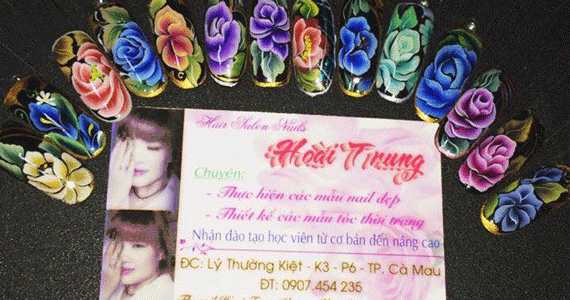 Hair Salon Nails
Hoài Trung
Chuyên:
- Thực hiện các mẫu nail đẹp
- Thiết kế các mẫu tóc thời trang
Nhận đào tạo học viên từ cơ bản đến nâng cao
ĐC: Lý Thường Kiệt - K3 - P6 - TP. Cà Mau
ĐT: 0907.454 235